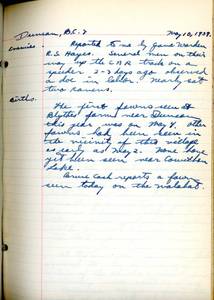 Duncan, B.C.
May 10, 1939.
Enemies
Reported to me by Game Warden
R.S. Hayes. Several men on their
way up the C.N.R. track on a
speeder 2-3 days ago observed
a doe in labor. Nearby sat
two ravens.
Births.
The first fawns seen at
Blyth's farm near Duncan
this year was on May 9. Other
fawns had been seen in
the vicinity of this village
as early as May 2. None have
yet been seen near Cowichan
Lake.
Bruce Cash reports a fawn
seen today on the Malahat.